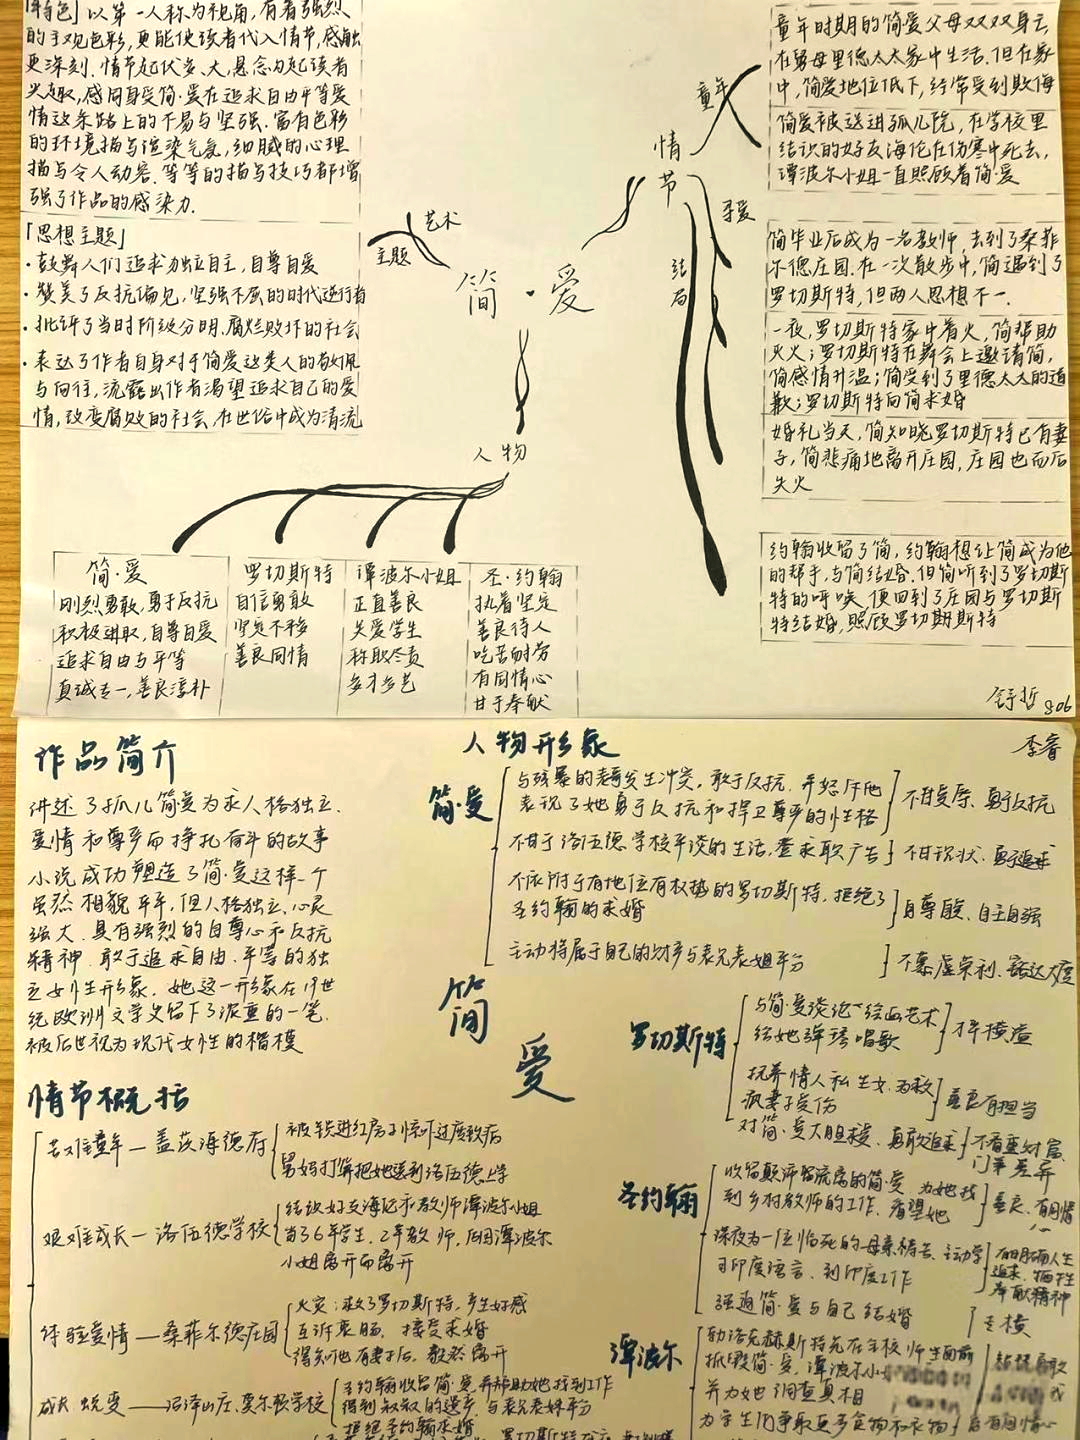 「特色」以第一人称为视角,有着强烈
的主观色彩,更能使读者代入情节,感触
更深刻.情节起伏多、大,悬念勾起读者
兴趣,感同身受简·爱在追求自由平等爱
情这条路上的不易与坚强.富有色彩
的环境描写渲染气氛,细腻的心理
描写令人动容.等等的描写技巧都增
强了作品的感染力.
「思想主题」
·鼓舞人们追求独立自主,自尊自爱
·赞美了反抗偏见,坚强不屈的时代逆行者
·批评了当时阶级分明.腐烂败坏的社会
·表达了作者自身对于简爱这类人的敬佩
与向往,流露出作者渴望追求自己的爱
情,改变腐败的社会.在世俗中成为清流
艺术
主题
简·爱
情节
童年
寻爱
结局
人物
童年时期的简·爱父母双双身亡,
在舅母里德太太家中生活.但在家
中,简爱地位低下,经常受到欺侮
简爱被送进孤儿院,在学校里
结识的好友海伦在伤寒中死去,
谭波尔小姐一直照顾着简·爱
简毕业后成为一名教师,去到了桑菲
尔德庄园.在一次散步中,简遇到了
罗切斯特,但两人思想不一.
一夜,罗切斯特家中着火,简帮助
灭火;罗切斯特在舞会上邀请简,
简感情升温;简受到了里德太太的道
歉;罗切斯特向简求婚
婚礼当天,简知晓罗切斯特已有妻
子,简悲痛地离开庄园,庄园也而后
失火
约翰收留了简,约翰想让简成为他
的帮手,与简结婚.但简听到了罗切斯
特的呼唤,便回到了庄园与罗切斯
特结婚,照顾罗切斯特
简·爱
刚烈勇敢,勇于反抗
积极进取,自尊自爱
追求自由与平等
真诚专一,善良淳朴
罗切斯特
自信勇敢
坚定不移
善良同情
谭波尔小姐
正直善良
关爱学生
称职尽责
多才多艺
圣·约翰
执着坚定
善良待人
吃苦耐劳
有同情心
甘于奉献
舒哲 806
李睿
作品简介
讲述了孤儿简爱为求人格独立.
爱情和尊严而挣扎奋斗的故事
小说成功塑造了简·爱这样一个
虽然相貌平平,但人格独立、心灵
强大.具有强烈的自尊心和反抗
精神.敢于追求自由.平等的独
立女性形象.她这一形象在19世
纪欧洲文学史留下了浓重的一笔.
被后世视为现代女性的楷模
人物形象
简·爱
与残暴的表哥发生冲突,敢于反抗.并怒斥他
表现了她勇于反抗和捍卫尊严的性格
不甘受辱、勇于反抗
不甘于洛伍德学校平淡的生活,登求职广告
不甘现状.勇于追求
不依附于有地位有权势的罗切斯特,拒绝了
圣约翰的求婚
自尊自主自强
主动将属于自己的财产与表兄表姐平分
不慕虚荣利、豁达大度
简爱
罗切斯特
与简·爱谈论绘画艺术
给她弹琴唱歌
才华横溢
抚养情人私生女.为救
疯妻子受伤
善良有担当
对简·爱大胆求爱,勇敢追求
不看重财富、
门第差异
圣约翰
收留颠沛流离的简·爱 为她找
到乡村教师的工作、看望她
善良、有同情
心
深夜为一位临死的母亲祷告、主动学
习印度语言、到印度工作
有明确人生
追求、牺牲
奉献精神
强迫简·爱与自己结婚
专横
谭波尔
勃洛克赫斯特先在全校师生面前
并为她调查真相
为学生们争取更多食物和衣物
情节概括
苦难童年—盖茨海德府
被锁进红房子惊吓过度致病
舅妈打算把她送到洛伍德上学
艰难成长—洛伍德学校
结识好友海伦和教师谭波尔小姐
当了6年学生.2年教师,后因谭波尔
小姐离开而离开
体验爱情—桑菲尔德庄园
火灾:救了罗切斯特,产生好感
互诉衷肠,接受求婚
得知他有妻子后,毅然离开
成长蜕变—沼泽山庄、莫尔顿学校
圣约翰收留简·爱,并帮助她找到工作
得到叔叔的遗产,与表兄表姊平分
拒绝圣约翰求婚